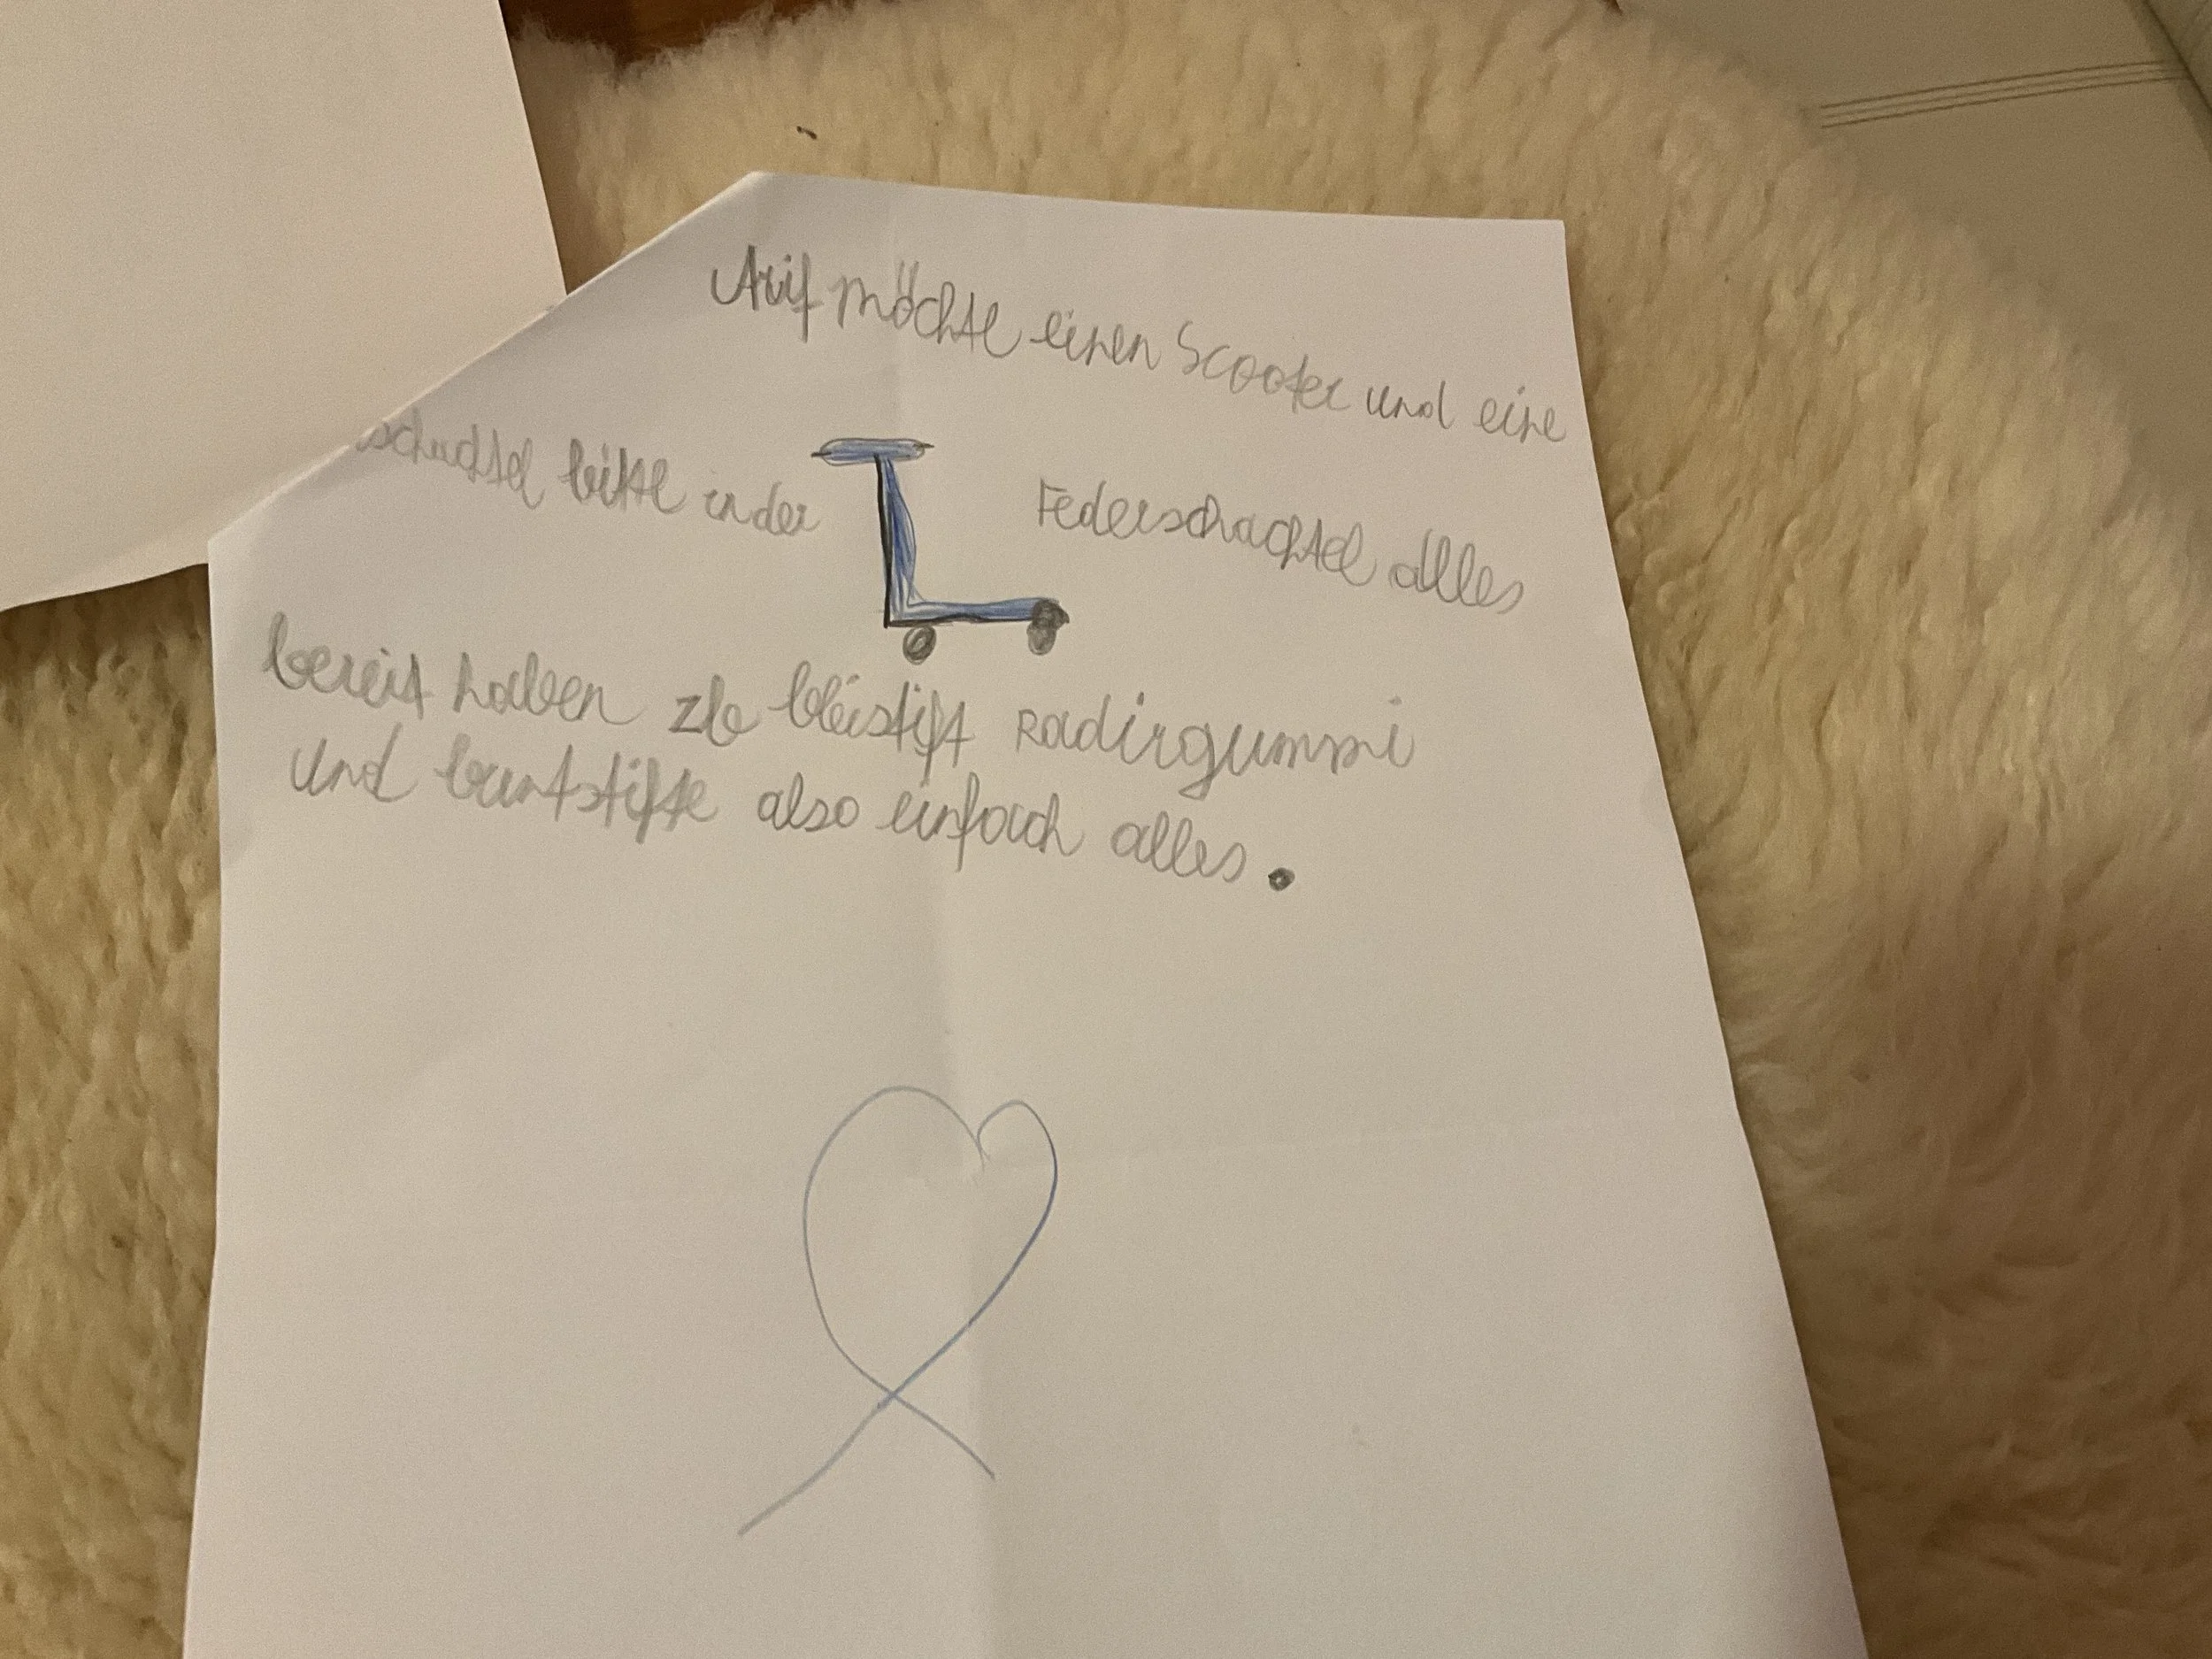 Arif möchte einen Scooter und eine
schachtel bitte in der Federschachtel alles
bereit haben zb bleistift Radirgummi
und buntstifte also einfach alles.